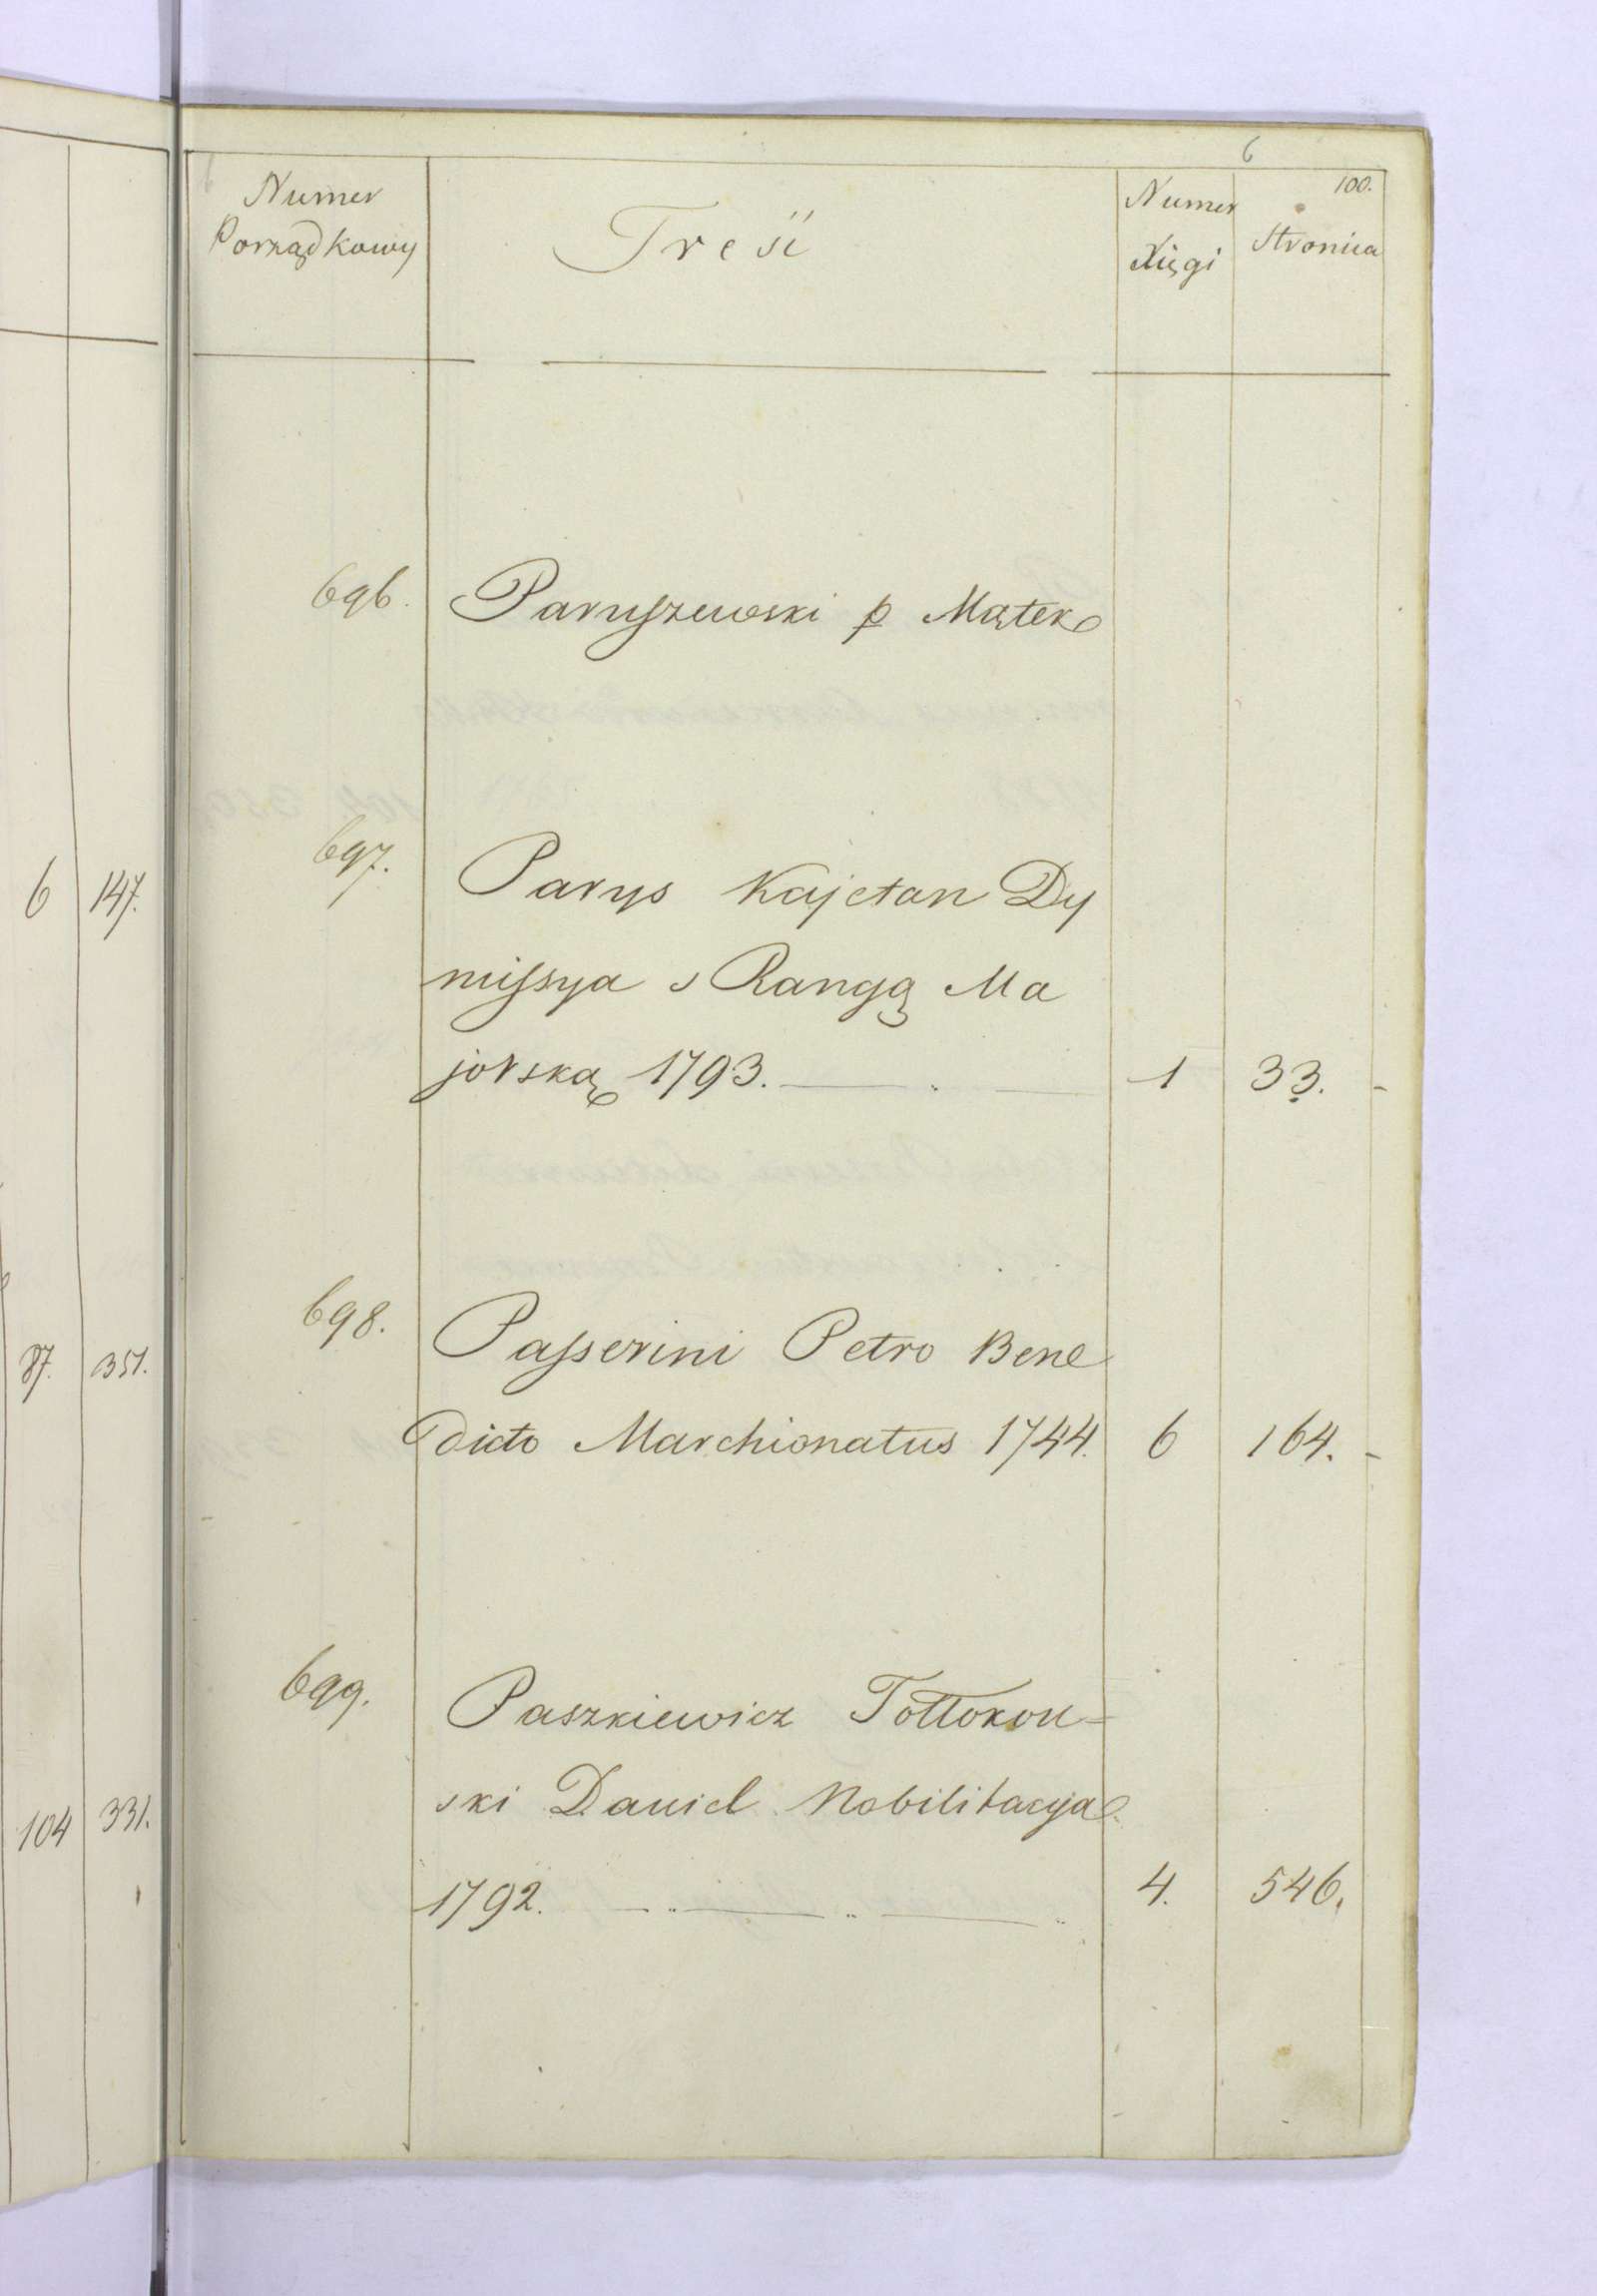 6
100.
Numer Porządkowy
Treść
Numer Xięgi
Stronica
696. Paryszewski p Mątek
697. Parys Kajetan Dy
missya s Rangą Ma
jorską 1793. 1 33.
698. Passerini Petro Bene
dicto Marchionatus 1744. 6 164.
699. Paszkiewicz Tołłokoń=
ski Daniel Nobilitacya
1792. 4. 546.
6 147.
87. 351.
104 331.